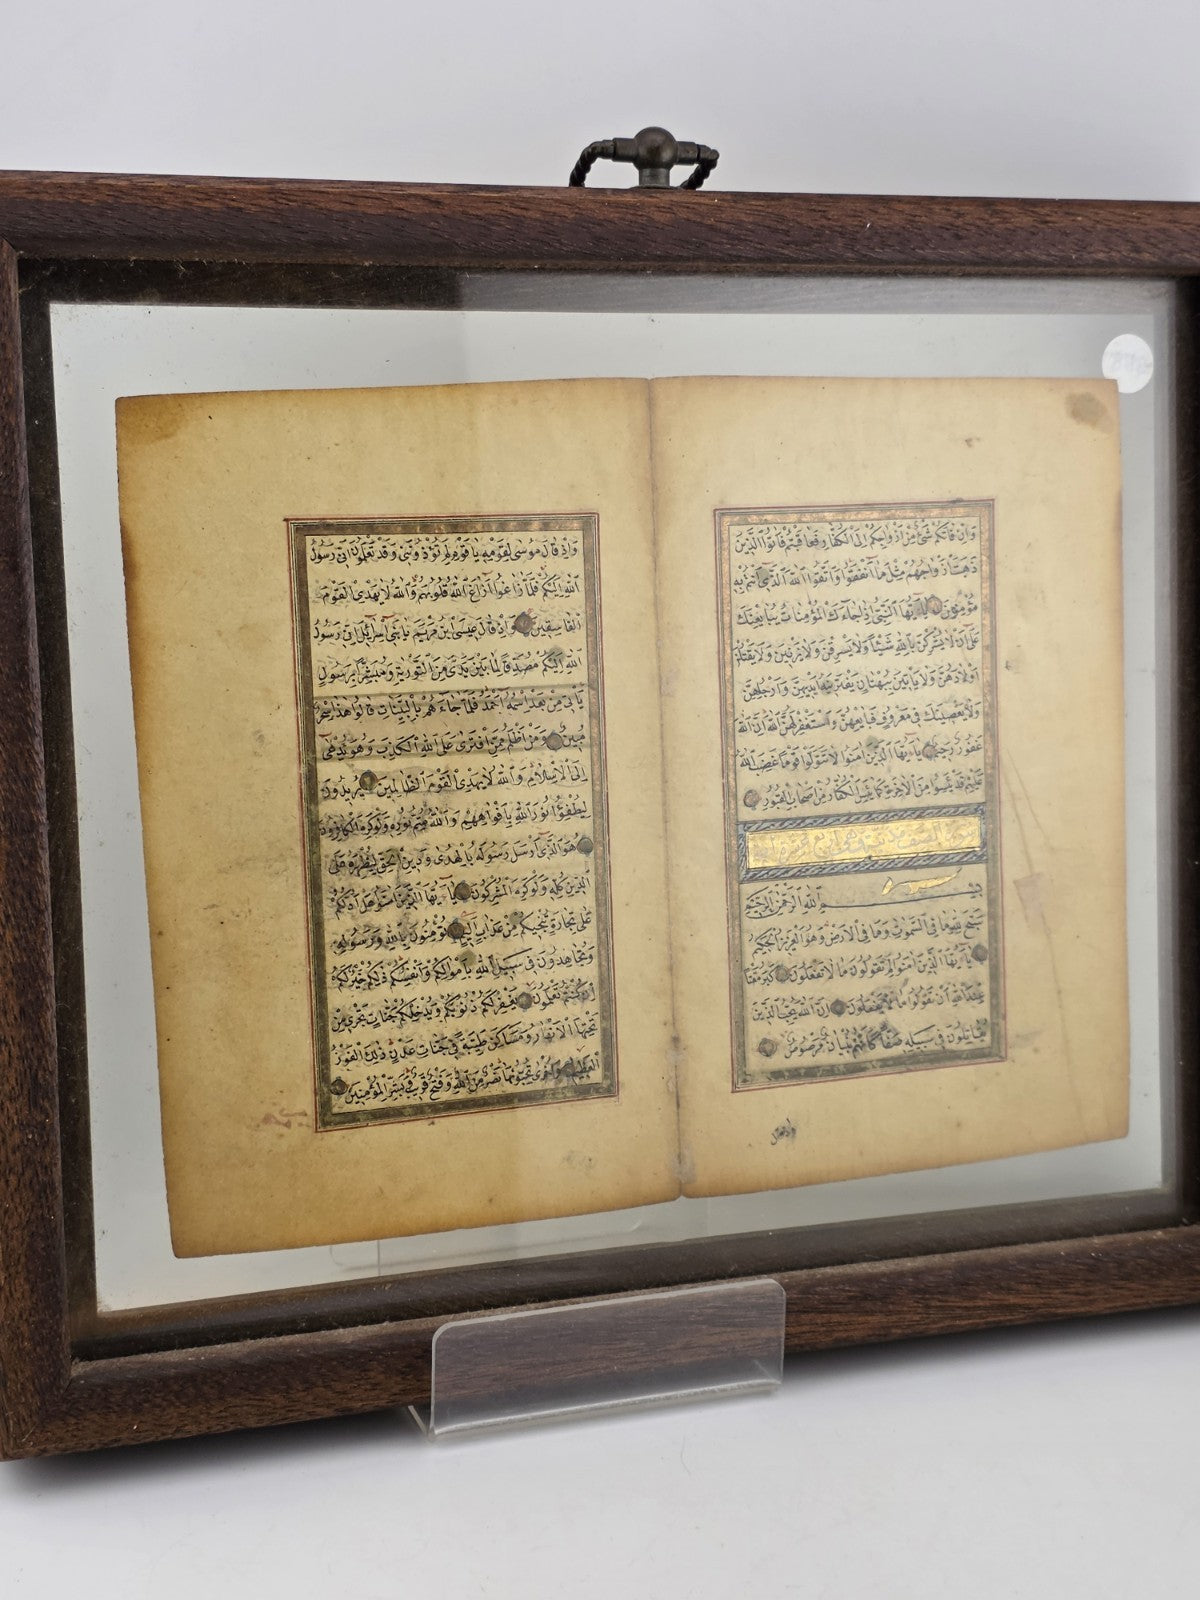 وَاِنْ فَاتَكُمْ شَىْءٌ مِنْ اَزْوَاجِكُمْ اِلَى الْكُفَّارِ فَعَاقَبْتُمْ فَاٰتُوا الَّذِينَ
ذَهَبَتْ اَزْوَاجُهُمْ مِثْلَ مَا اَنْفَقُوا وَاتَّقُوا اللّٰهَ الَّذِى اَنْتُمْ بِهِ
مُؤْمِنُونَ يَا اَيُّهَا النَّبِىُّ اِذَا جَاءَكَ الْمُؤْمِنَاتُ يُبَايِعْنَكَ
عَلَى اَنْ لَا يُشْرِكْنَ بِاللّٰهِ شَيْئًا وَلَا يَسْرِقْنَ وَلَا يَزْنِينَ وَلَا يَقْتُلْنَ
اَوْلَادَهُنَّ وَلَا يَأْتِينَ بِبُهْتَانٍ يَفْتَرِينَهُ بَيْنَ اَيْدِيهِنَّ وَاَرْجُلِهِنَّ
وَلَا يَعْصِينَكَ فِى مَعْرُوفٍ فَبَايِعْهُنَّ وَاسْتَغْفِرْ لَهُنَّ اللّٰهَ اِنَّ اللّٰهَ
غَفُورٌ رَحِيمٌ يَا اَيُّهَا الَّذِينَ اٰمَنُوا لَا تَتَوَلَّوْا قَوْمًا غَضِبَ اللّٰهُ
عَلَيْهِمْ قَدْ يَئِسُوا مِنَ الْاٰخِرَةِ كَمَا يَئِسَ الْكُفَّارُ مِنْ اَصْحَابِ الْقُبُورِ
سورة الصف
بِسْمِ اللّٰهِ الرَّحْمٰنِ الرَّحِيمِ
سَبَّحَ لِلّٰهِ مَا فِى السَّمٰوَاتِ وَمَا فِى الْاَرْضِ وَهُوَ الْعَزِيزُ الْحَكِيمُ
يَا اَيُّهَا الَّذِينَ اٰمَنُوا لِمَ تَقُولُونَ مَا لَا تَفْعَلُونَ كَبُرَ مَقْتًا
عِنْدَ اللّٰهِ اَنْ تَقُولُوا مَا لَا تَفْعَلُونَ اِنَّ اللّٰهَ يُحِبُّ الَّذِينَ
يُقَاتِلُونَ فِى سَبِيلِهِ صَفًّا كَاَنَّهُمْ بُنْيَانٌ مَرْصُوصٌ
واذ قال
وَاِذْ قَالَ مُوسٰى لِقَوْمِهِ يَا قَوْمِ لِمَ تُؤْذُونَنِى وَقَدْ تَعْلَمُونَ اَنِّى رَسُولُ
اللّٰهِ اِلَيْكُمْ فَلَمَّا زَاغُوا اَزَاغَ اللّٰهُ قُلُوبَهُمْ وَاللّٰهُ لَا يَهْدِى الْقَوْمَ
الْفَاسِقِينَ وَاِذْ قَالَ عِيسَى ابْنُ مَرْيَمَ يَا بَنِى اِسْرَائِلَ اِنِّى رَسُولُ
اللّٰهِ اِلَيْكُمْ مُصَدِّقًا لِمَا بَيْنَ يَدَىَّ مِنَ التَّوْرٰيةِ وَمُبَشِّرًا بِرَسُولٍ
يَأْتِى مِنْ بَعْدِى اسْمُهُ اَحْمَدُ فَلَمَّا جَاءَهُمْ بِالْبَيِّنَاتِ قَالُوا هٰذَا سِحْرٌ
مُبِينٌ وَمَنْ اَظْلَمُ مِمَّنِ افْتَرٰى عَلَى اللّٰهِ الْكَذِبَ وَهُوَ يُدْعٰى
اِلَى الْاِسْلَامِ وَاللّٰهُ لَا يَهْدِى الْقَوْمَ الظَّالِمِينَ يُرِيدُونَ
لِيُطْفِؤُا نُورَ اللّٰهِ بِاَفْوَاهِهِمْ وَاللّٰهُ مُتِمُّ نُورِهِ وَلَوْ كَرِهَ الْكَافِرُونَ
هُوَ الَّذِى اَرْسَلَ رَسُولَهُ بِالْهُدٰى وَدِينِ الْحَقِّ لِيُظْهِرَهُ عَلَى
الدِّينِ كُلِّهِ وَلَوْ كَرِهَ الْمُشْرِكُونَ يَا اَيُّهَا الَّذِينَ اٰمَنُوا هَلْ اَدُلُّكُمْ
عَلَى تِجَارَةٍ تُنْجِيكُمْ مِنْ عَذَابٍ اَلِيمٍ تُؤْمِنُونَ بِاللّٰهِ وَرَسُولِهِ
وَتُجَاهِدُونَ فِى سَبِيلِ اللّٰهِ بِاَمْوَالِكُمْ وَاَنْفُسِكُمْ ذٰلِكُمْ خَيْرٌ لَكُمْ
اِنْ كُنْتُمْ تَعْلَمُونَ يَغْفِرْ لَكُمْ ذُنُوبَكُمْ وَيُدْخِلْكُمْ جَنَّاتٍ تَجْرِى مِنْ
تَحْتِهَا الْاَنْهَارُ وَمَسَاكِنَ طَيِّبَةً فِى جَنَّاتِ عَدْنٍ ذٰلِكَ الْفَوْزُ
الْعَظِيمُ وَاُخْرٰى تُحِبُّونَهَا نَصْرٌ مِنَ اللّٰهِ وَفَتْحٌ قَرِيبٌ وَبَشِّرِ الْمُؤْمِنِينَ